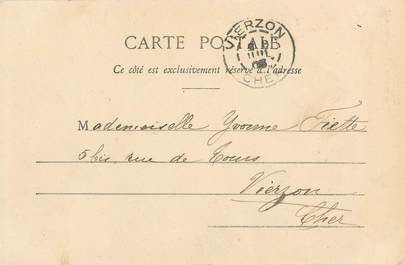 VIERZON
CARTE POSTALE
CHER
Ce côté est exclusivement réservé à l'adresse
Mademoiselle Yvonne Fiette
5 bis, rue de Tours
Vierzon
Cher